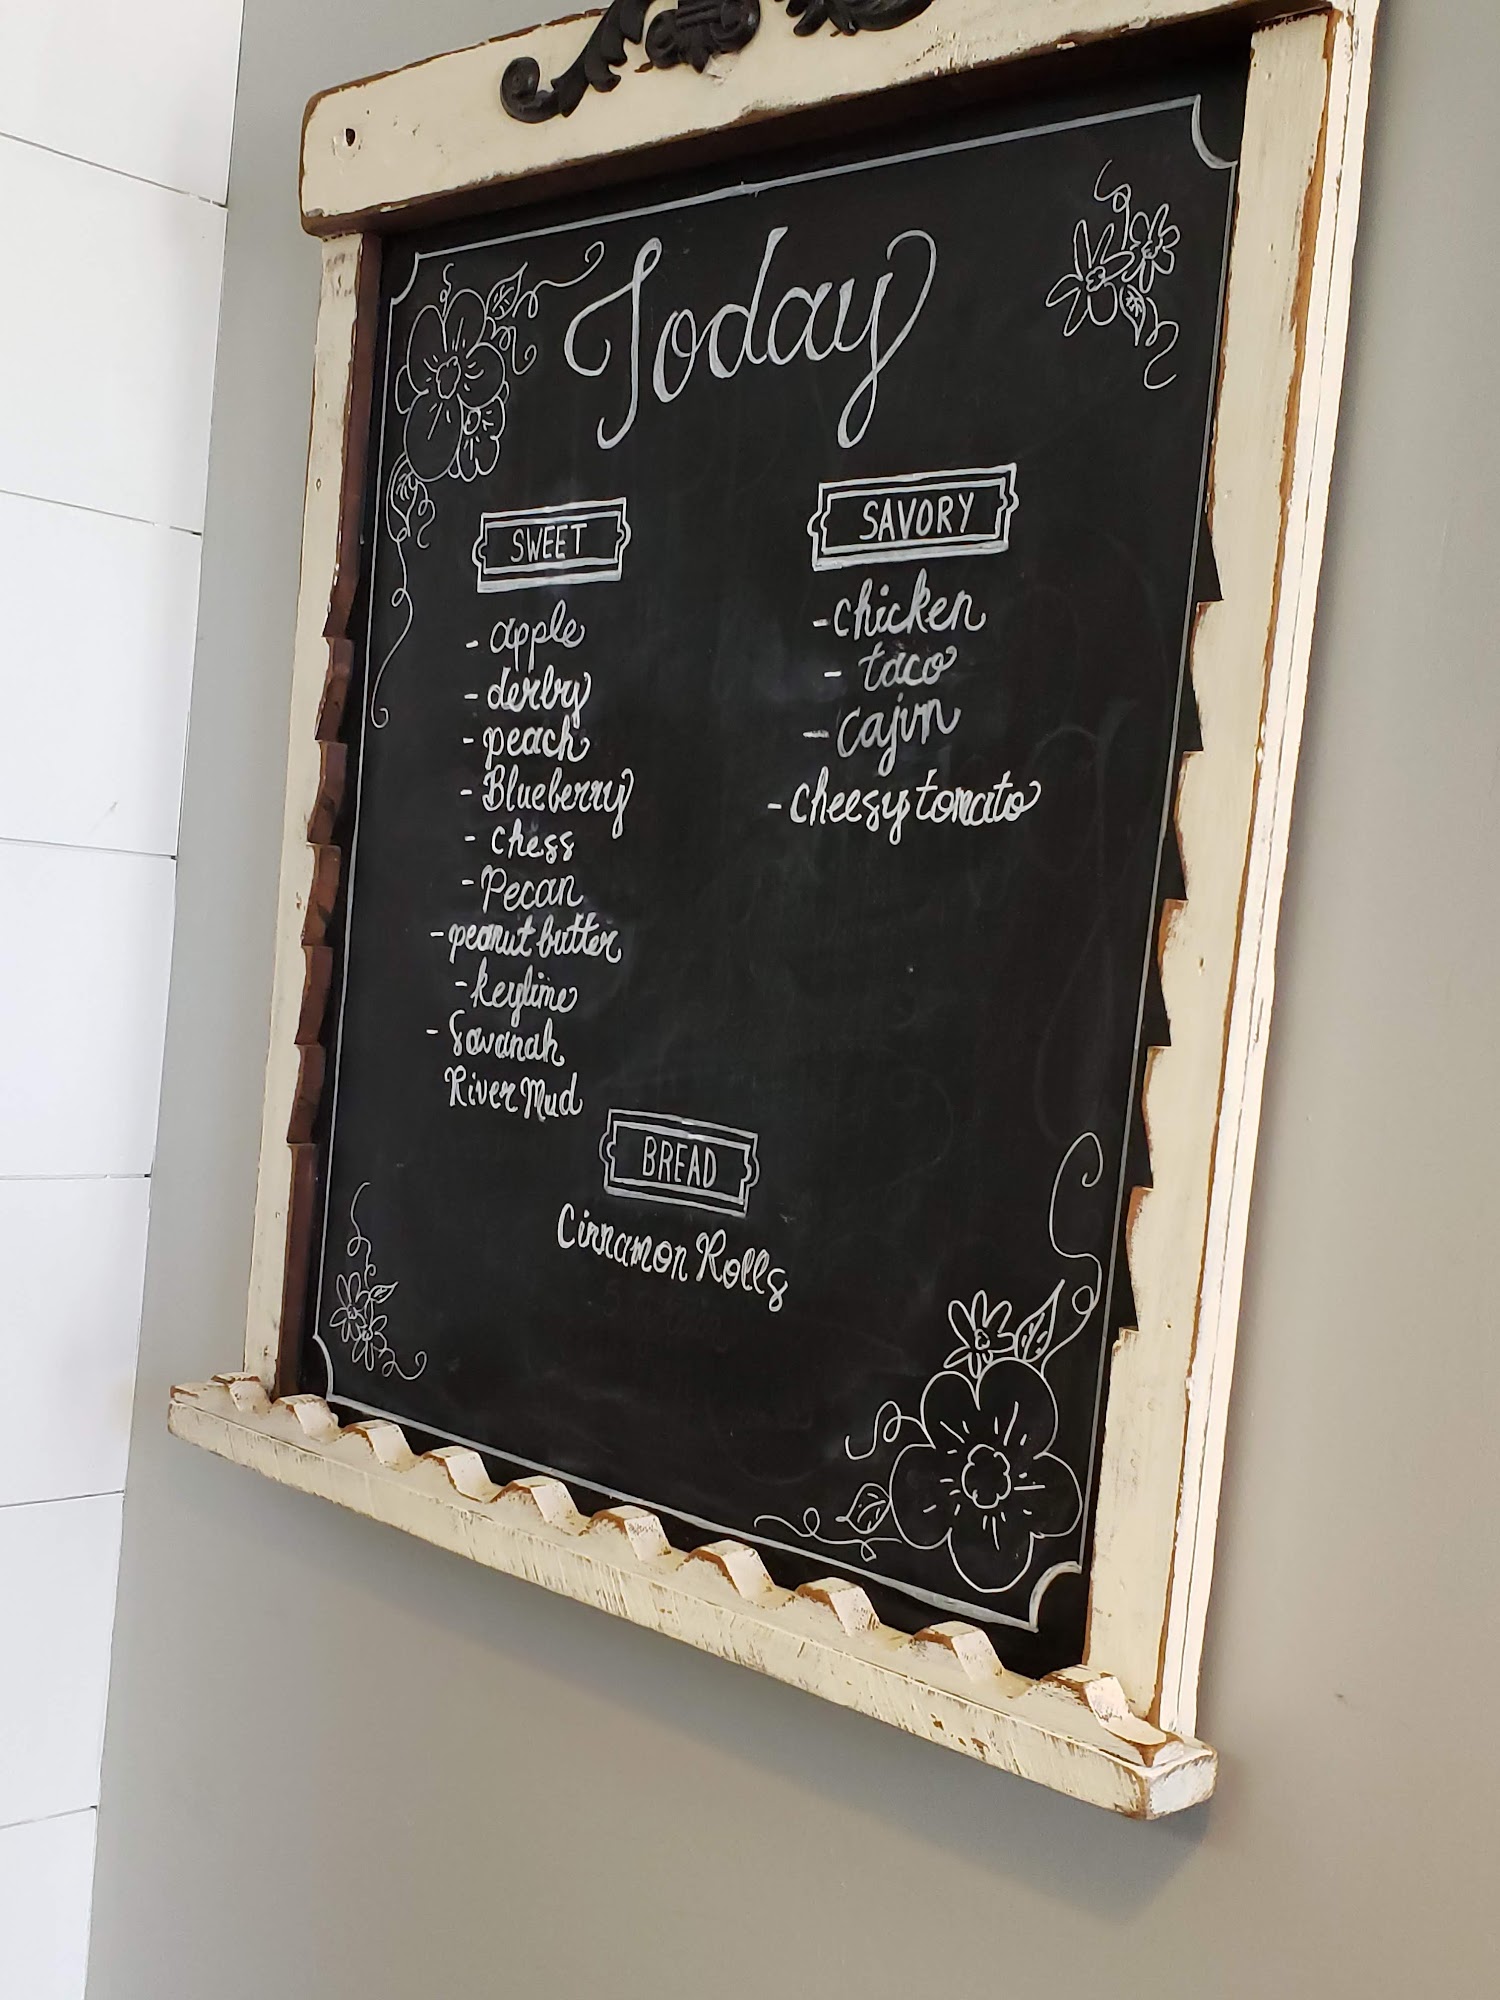 Today
SWEET
- apple
- derby
- peach
- Blueberry
- chess
- Pecan
- peanut butter
- keylime
- Savanah
River Mud
SAVORY
- chicken
- taco
- cajun
- cheesy tomato
BREAD
Cinnamon Rolls